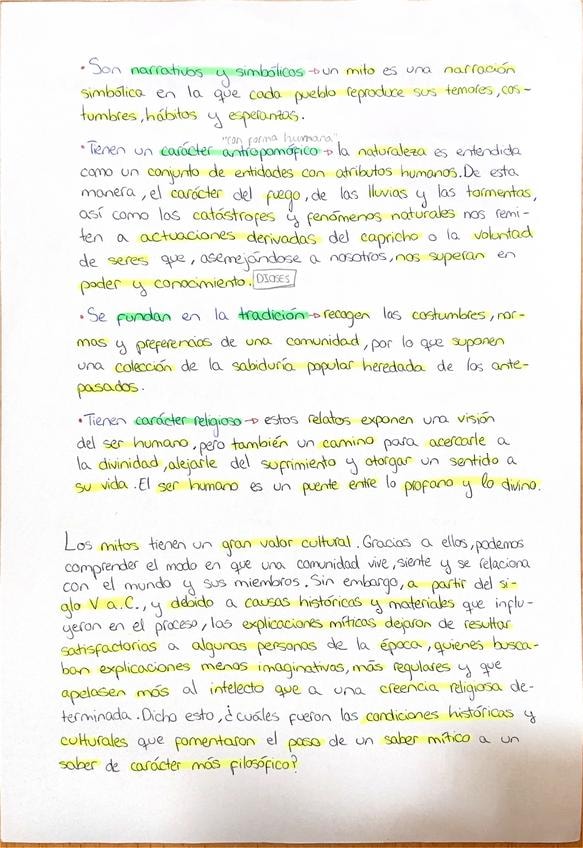 • Son narrativos y simbólicos → un mito es una narración
simbólica en la que cada pueblo reproduce sus temores, cos-
tumbres, hábitos y esperanzas.
"con forma humana"
• Tienen un carácter antropomófico → la naturaleza es entendida
como un conjunto de entidades con atributos humanos. De esta
manera, el carácter del fuego, de las lluvias y las tormentas,
así como las catástrofes y fenómenos naturales nos remi-
ten a actuaciones derivadas del capricho o la voluntad
de seres que, asemejándose a nosotros, nos superan en
poder y conocimiento. DIOSES
• Se fundan en la tradición → recogen las costumbres, nor-
mas y preferencias de una comunidad, por lo que suponen
una colección de la sabiduría popular heredada de los ante-
pasados.
• Tienen carácter religioso → estos relatos exponen una visión
del ser humano, pero también un camino para acercarle a
la divinidad, alejarle del sufrimiento y otorgar un sentido a
su vida. El ser humano es un puente entre lo profano y lo divino.
Los mitos tienen un gran valor cultural. Gracias a ellos, podemos
comprender el modo en que una comunidad vive, siente y se relaciona
con el mundo y sus miembros. Sin embargo, a partir del si-
glo V a.C., y debido a causas históricas y materiales que influ-
yeron en el proceso, las explicaciones míticas dejaron de resultar
satisfactorias a algunas personas de la época, quienes busca-
ban explicaciones menos imaginativas, más regulares y que
apelasen más al intelecto que a una creencia religiosa de-
terminada. Dicho esto, ¿cuáles fueron las condiciones históricas y
culturales que fomentaron el paso de un saber mítico a un
saber de carácter más filosófico?